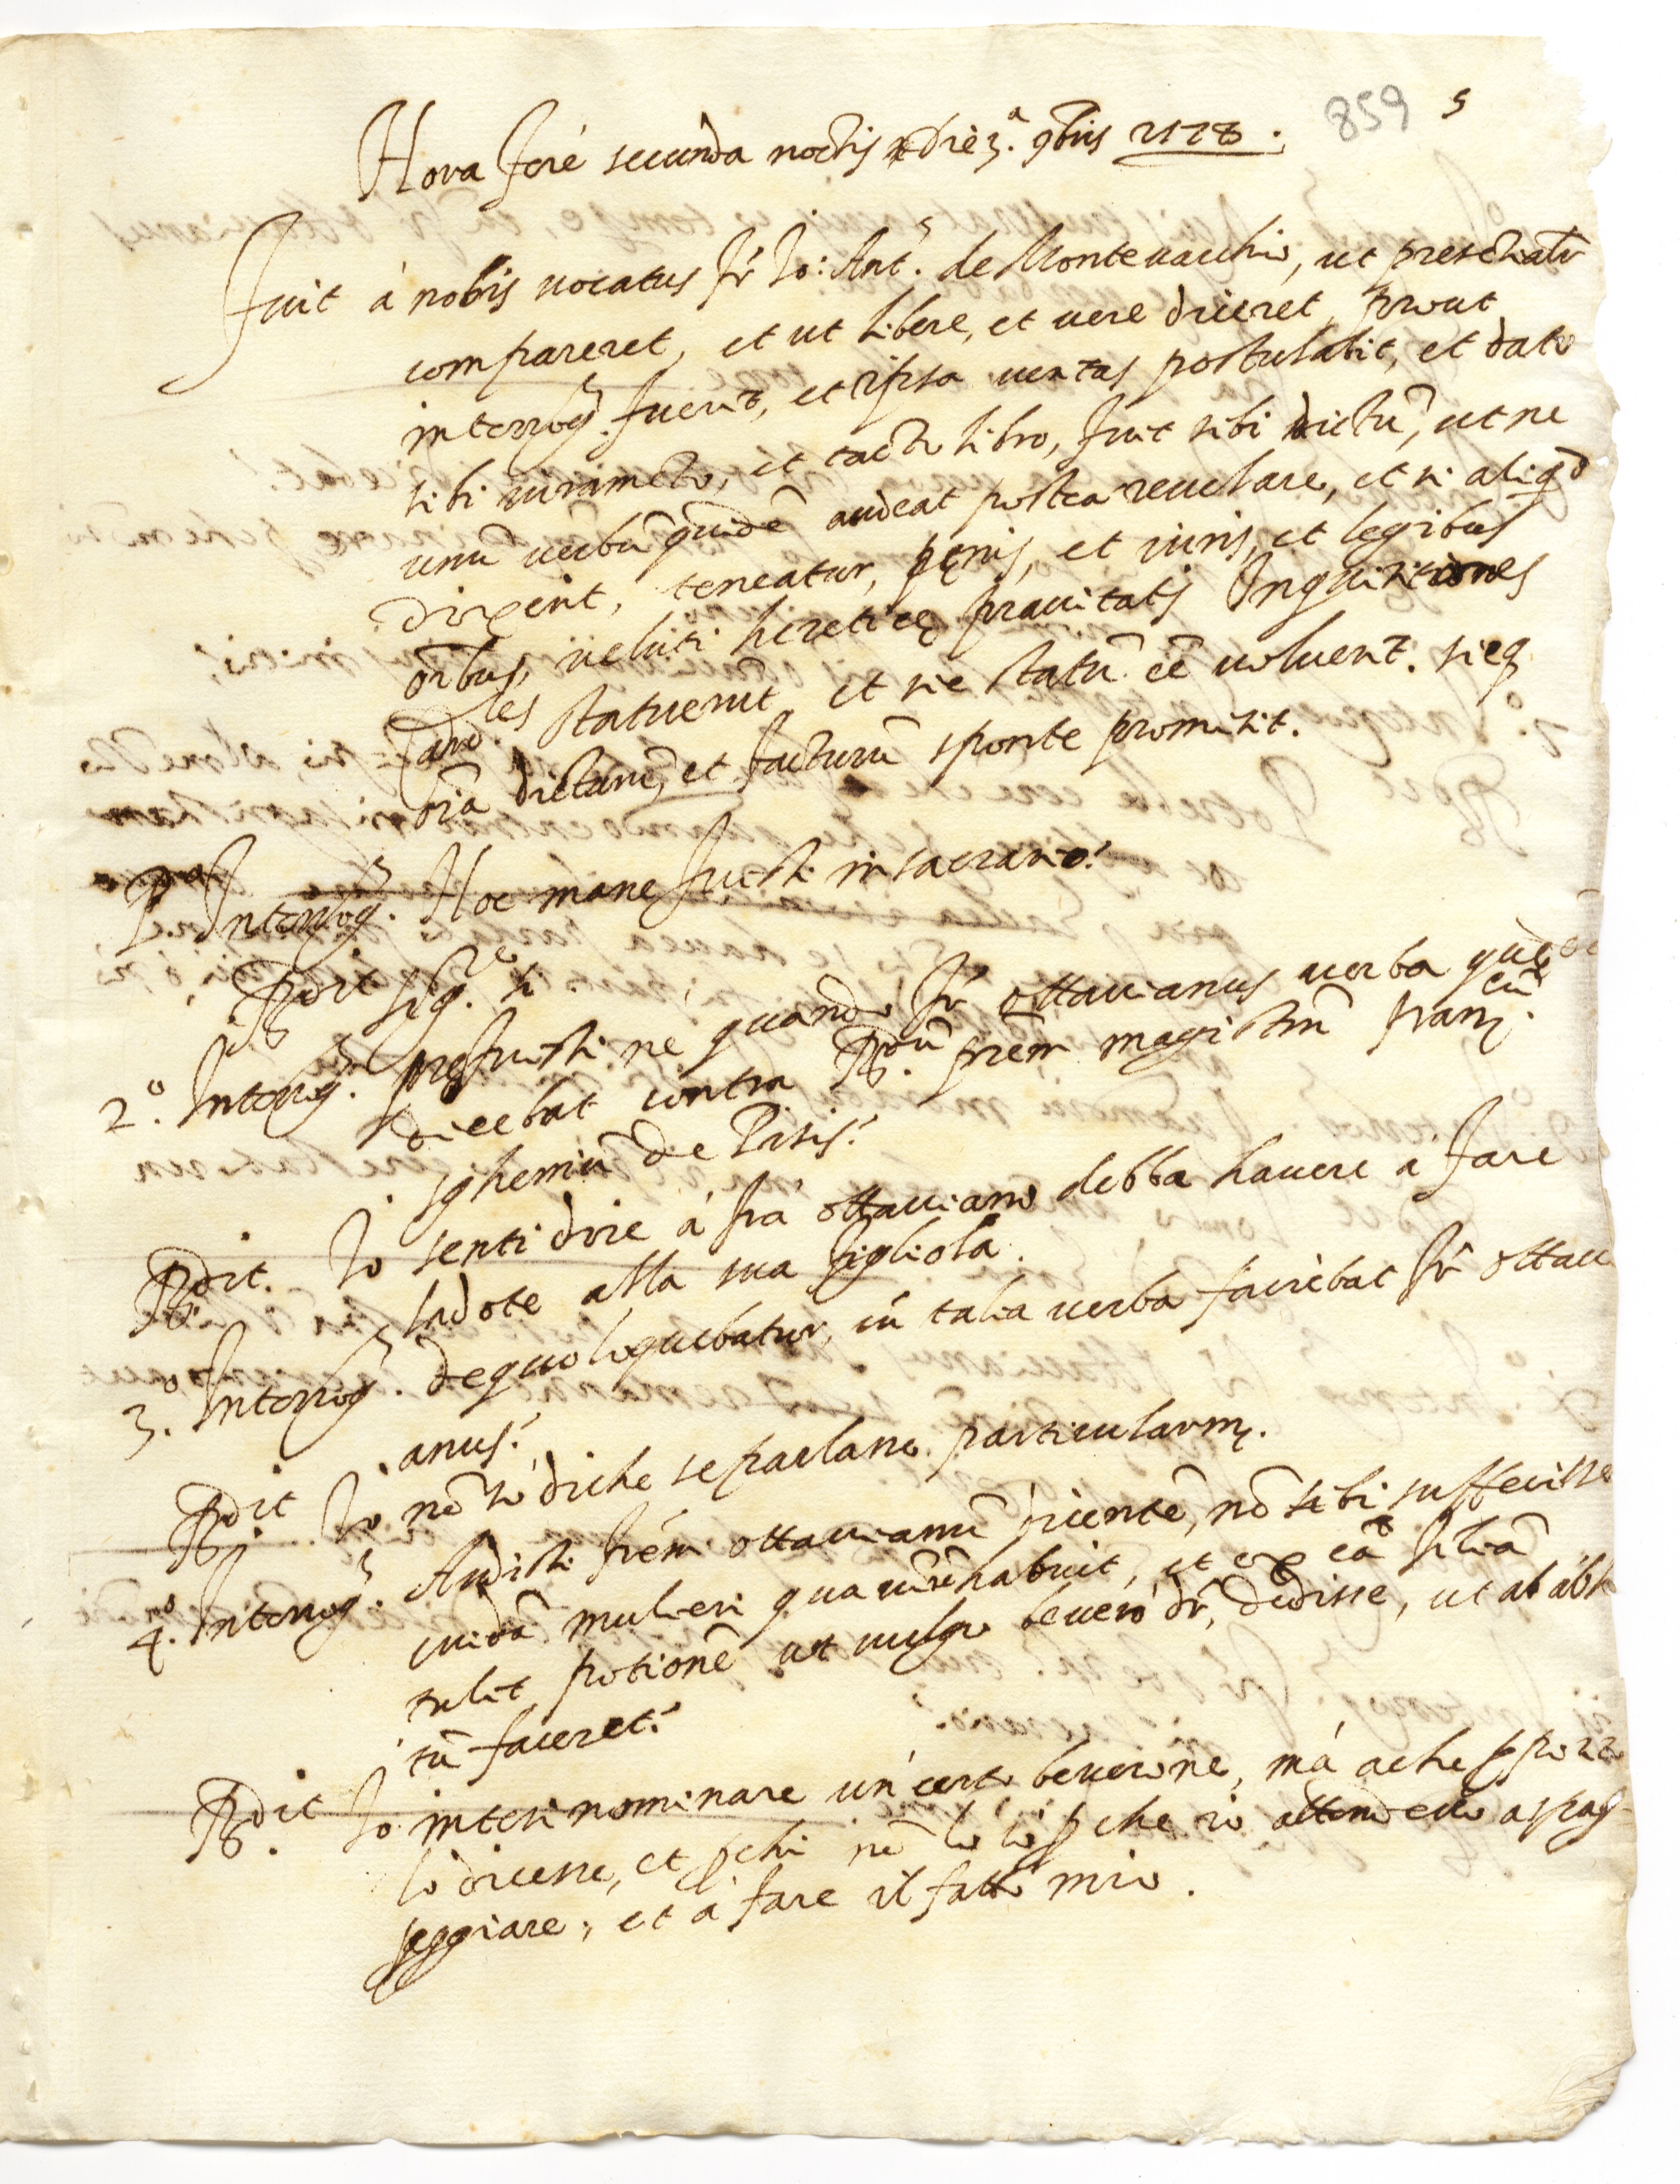 859 5
Hora ferè secunda noctis die 3.ª 9bris 1578.
Fuit à nobis vocatus fr̃ Io: Ant.s de Montevarchio, ut
compareret, et ut libere, et vere diceret, prout
interrog.s fuerit, et ipsa veritas postulabit, et dato
sibi iuramẽto, et tacto libro, fuit sibi dictũ, ut ne
unũ verbũ quidẽ audeat postea revelare, et si aliqd
dixerit, teneatur, pęnis, et iuris, et legibus
oĩbus, veluti hereticę pravitatis Inquisitiones
statuerut et sic statũ eẽ voluerũt. sicq
oĩa dicturũ, et facturũ sponte promisit.
P.º Interrog.s Hoc mane fuisti in sacrario?
Rdit sì.
2.º Interrog.s pręfuisti ne quando fr̃ Ottavianus verba quędã
dicebat contra R.dũ prẽm magistrũ Franc.cũ
sghemiũ de Pisis?
Rdit. Io senti dire à frà Ottaviano debba havere à fare
la dote alla sua figliola.
3.º Interrog.s de quo loquebatur, cũ talia verba faciebat fr̃ Ottavi
anus?
Rdit Io nõ so di che se parlano particularmẽ.
4.º Interrog.s Audisti frẽm Ottavianũ dicentẽ, nõ sibi suffecisse
cuidã mulieri qua cũ rẽ habuit, et ex eã filiã
tulit, potionẽ ut vulgo bevero dr̃, dedisse, ut ab
tũ faceret?
Rdit Io intesi nominare un' certo beverone, mà a che pposito
lo dicesse, et p chi nõ lo so p che io attendevo a pas
seggiare, et à fare il fatto mio.